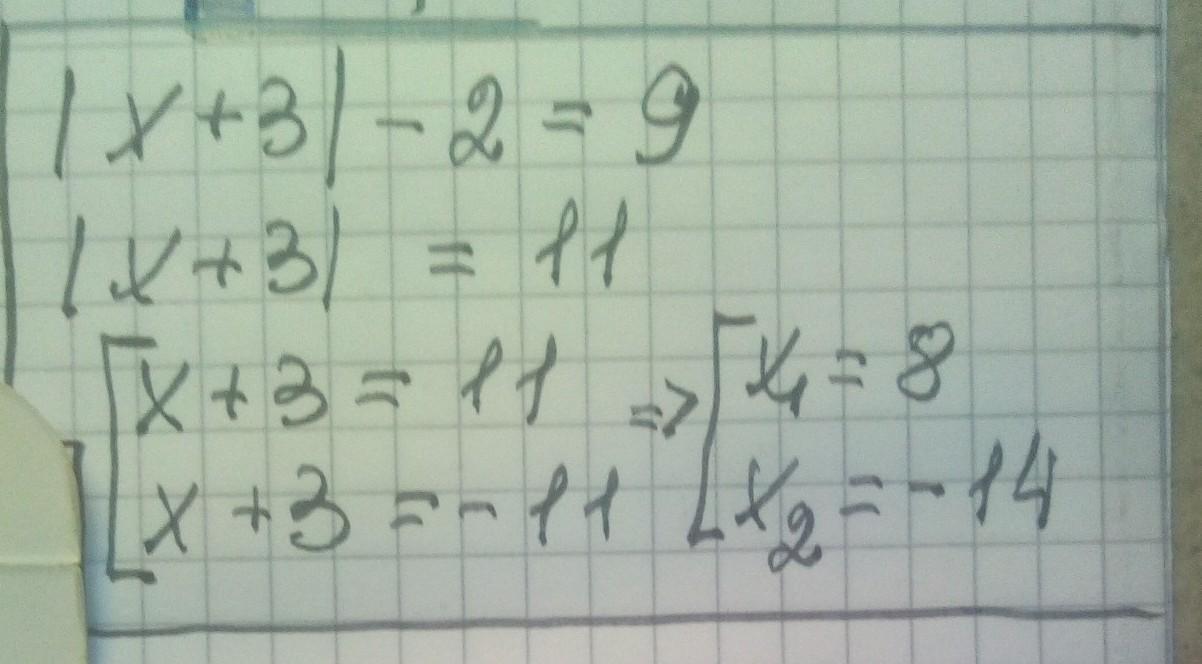 |x+3| - 2 = 9
|x+3| = 11
[x+3 = 11 => [x₁ = 8
x+3 = -11 x₂ = -14